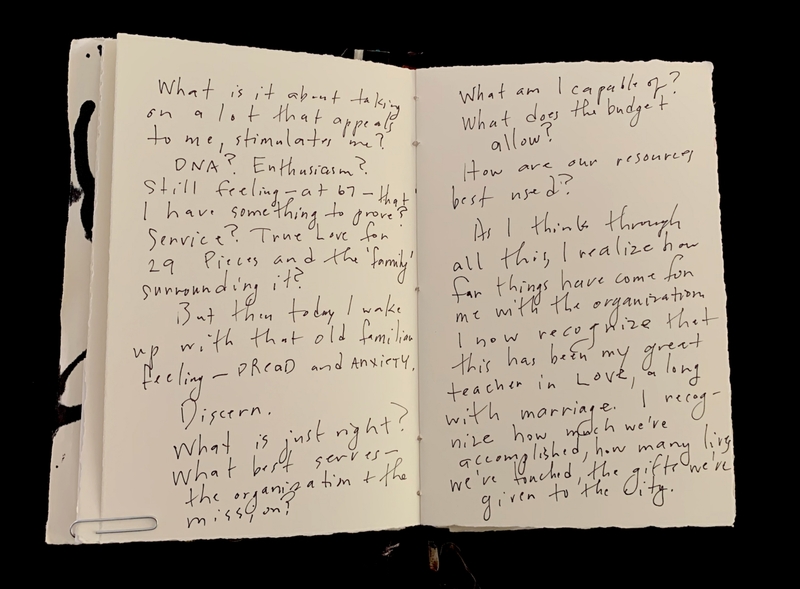 What is it about taking
on a lot that appeals
to me, stimulates me?
DNA? Enthusiasm?
Still feeling – at 67 – that
I have something to prove?
Service? True Love for
29 Pieces and the 'family'
surrounding it?
But then today I wake
up with that old familiar
feeling – DREAD and ANXIETY.
Discern.
What is just right?
What best serves –
the organization + the
mission?
What am I capable of?
What does the budget
allow?
How are our resources
best used?
As I think through
all this, I realize how
far things have come for
me with the organization
I now recognize that
this has been my great
teacher in Love, along
with marriage. I recog-
nize how much we've
accomplished, how many lives
we've touched, the gifts we've
given to the City.